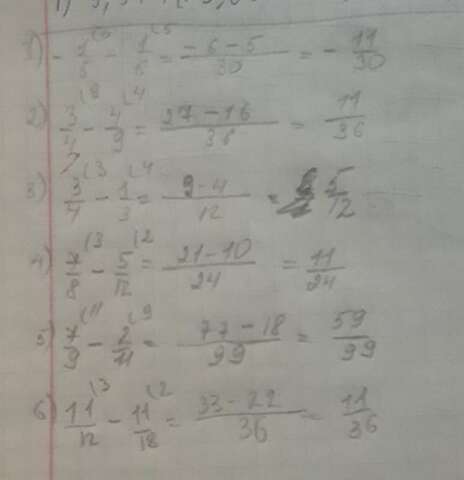 1) - 1/5 - 1/6 = -6-5/30 = - 11/30
2) 3/4 - 4/9 = 27-16/36 = 11/36
3) 3/4 - 1/3 = 9-4/12 = 5/12
4) 7/8 - 5/12 = 21-10/24 = 11/24
5) 7/9 - 2/11 = 77-18/99 = 59/99
6) 11/12 - 11/18 = 33-22/36 = 11/36